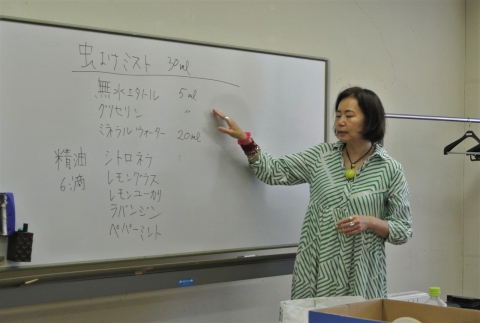 虫よけミスト 30ml
無水エタノール 5ml
グリセリン 〃
ミネラルウォーター 20ml
精油 シトロネラ
6滴 レモングラス
レモンユーカリ
ラバンジン
ペパーミント